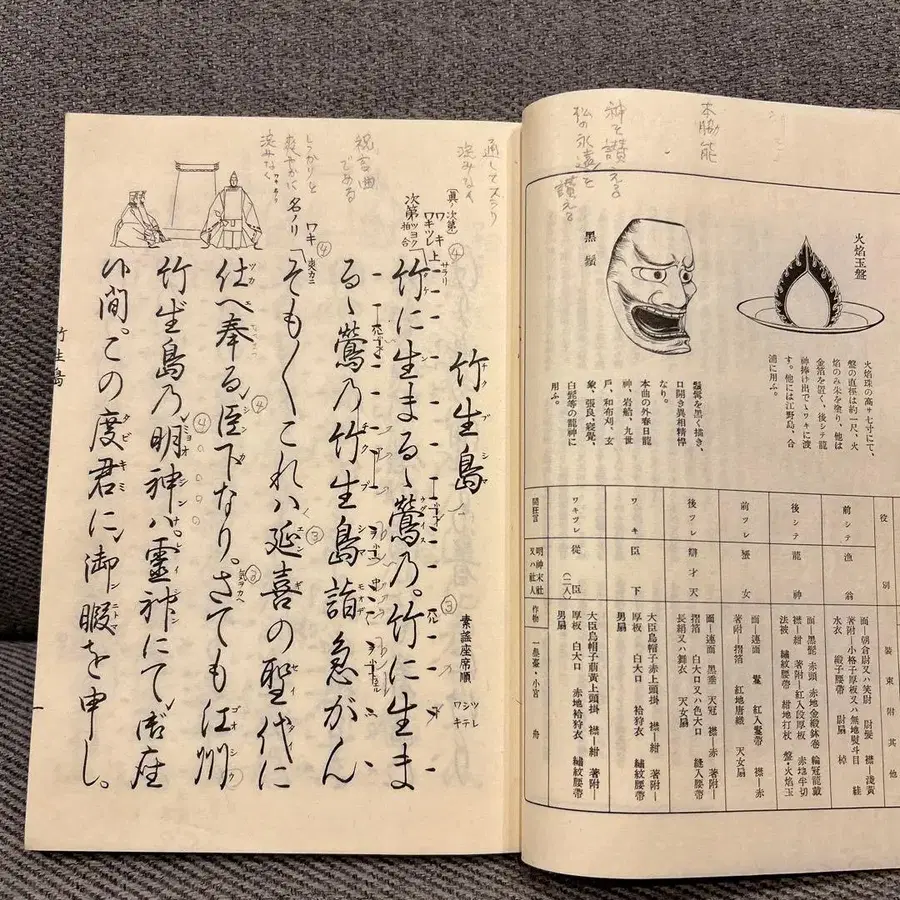 本脇能
神を讃える
松の永遠を
讃える
火焔玉盤
火焔珠の高サ七寸にて、
盤の直径は約一尺、火
焔のみ朱を塗り、他は
金箔を置く、後シテ龍
神捧げ出でゝワキに渡
す。他には江野島、合
浦に用ふ。
黒髭
鬚髯を黒く描き、
口開き異相精悍
なり。
本曲の外春日龍
神、岩船、九世
戸、和布刈、玄
象、張良、寝覺、
白髭等の龍神に
用ふ。
役別 装束附其他
前シテ 漁翁
面―朝倉尉又ハ笑尉 尉髪 襟―淺黄
著附―小格子厚板又ハ無地熨斗目 絓
水衣 緞子腰帶 尉扇 棹
後シテ 龍神
面―黒髭 赤頭 赤地金緞鉢巻 輪冠龍戴
襟―紺 著附―紅入段厚板 赤地半切
法被 繡紋腰帶 紺地打杖 盤・火焔玉
前ツレ 蜑女
面―連面 鬘 紅入鬘帶 襟―赤
著附―摺箔 紅地唐織 天女扇
後ツレ 辯才天
面―連面 黒垂 天冠 襟―赤 著附―
摺箔 白大口又ハ色大口 縫入腰帶
長絹又ハ舞衣 天女扇
ワキ 臣下
大臣烏帽子赤上頭掛 襟―紺 著附―
厚板 白大口 袷狩衣 繡紋腰帶
男扇
ワキツレ 從臣(二人)
大臣烏帽子萠黄上頭掛 襟―紺 著附―
厚板 白大口 赤地袷狩衣 繡紋腰帶
男扇
間狂言 明神末社又ハ社人 作物 一疊臺・小宮 舟
竹生島
チクブシマ
素謡座席順
ツレ
シテ
ワキ
通してスラリ
淀みなく
(眞ノ次第)
ワキ
ワキツレ
次第
ツヨク
拍合
上
サラリ
竹に生まるゝ鶯乃。竹に生ま
るゝ鶯乃竹生島詣急がん
祝言曲
である
ワキ
名ノリ
爽カニ
そも〳〵これハ延喜の聖代に
しっかりと
爽やかに
淀みなく
仕へ奉る臣下なり。さても江州
竹生島乃明神ハ。靈神にて御座
ひ間。この度君に御暇を申し。
竹生島
一